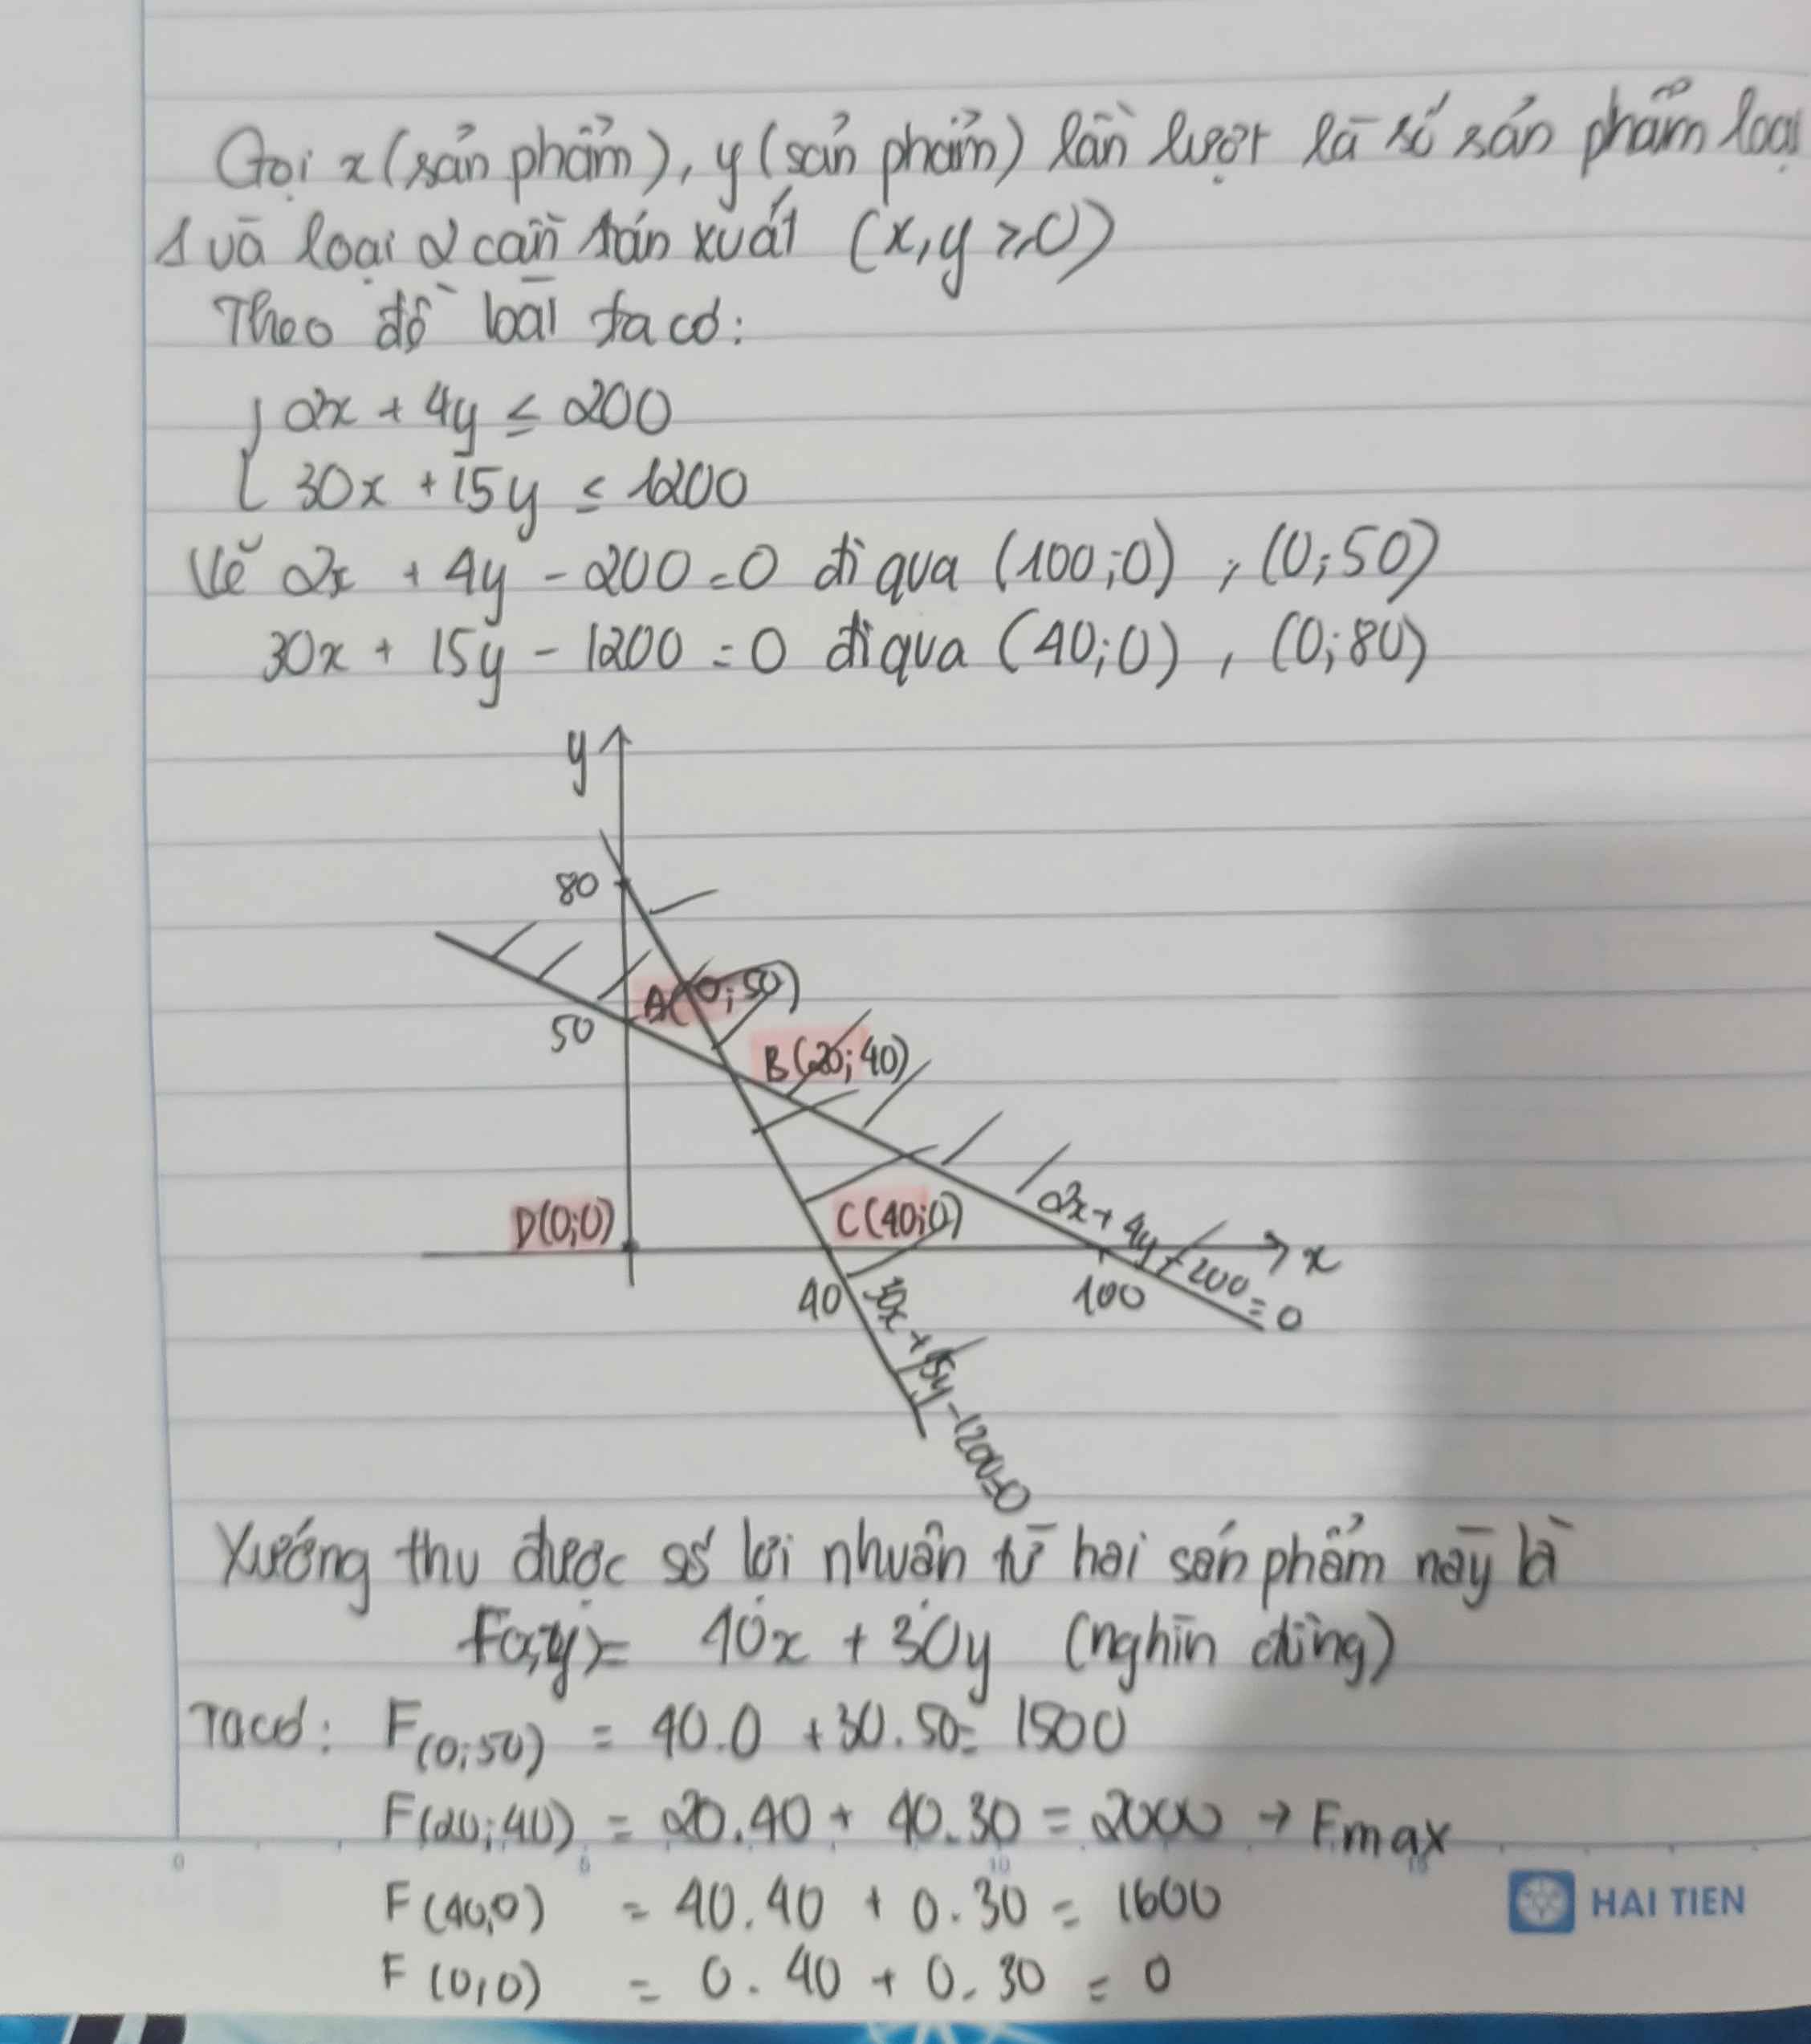 Gọi x (sản phẩm), y (sản phẩm) lần lượt là số sản phẩm loại
1 và loại 2 cần sản xuất (x,y ≥ 0)
Theo đề bài ta có:
{ 2x + 4y ≤ 200
30x + 15y ≤ 1200
Vẽ 2x + 4y - 200 = 0 đi qua (100;0) , (0;50)
30x + 15y - 1200 = 0 đi qua (40;0) , (0;80)
y
80
A(0;50)
50
B(20;40)
D(0;0)
C(40;0)
2x + 4y - 200 = 0
x
40
100
30x + 15y - 1200=0
Xưởng thu được số lợi nhuận từ hai sản phẩm này là
F(x;y) = 40x + 30y (nghìn đồng)
Ta có: F(0;50) = 40.0 + 30.50 = 1500
F(20;40) = 20.40 + 40.30 = 2000 → Fmax
F(40,0) = 40.40 + 0.30 = 1600
F(0,0) = 0.40 + 0.30 = 0
0 5 10 15
HAI TIEN